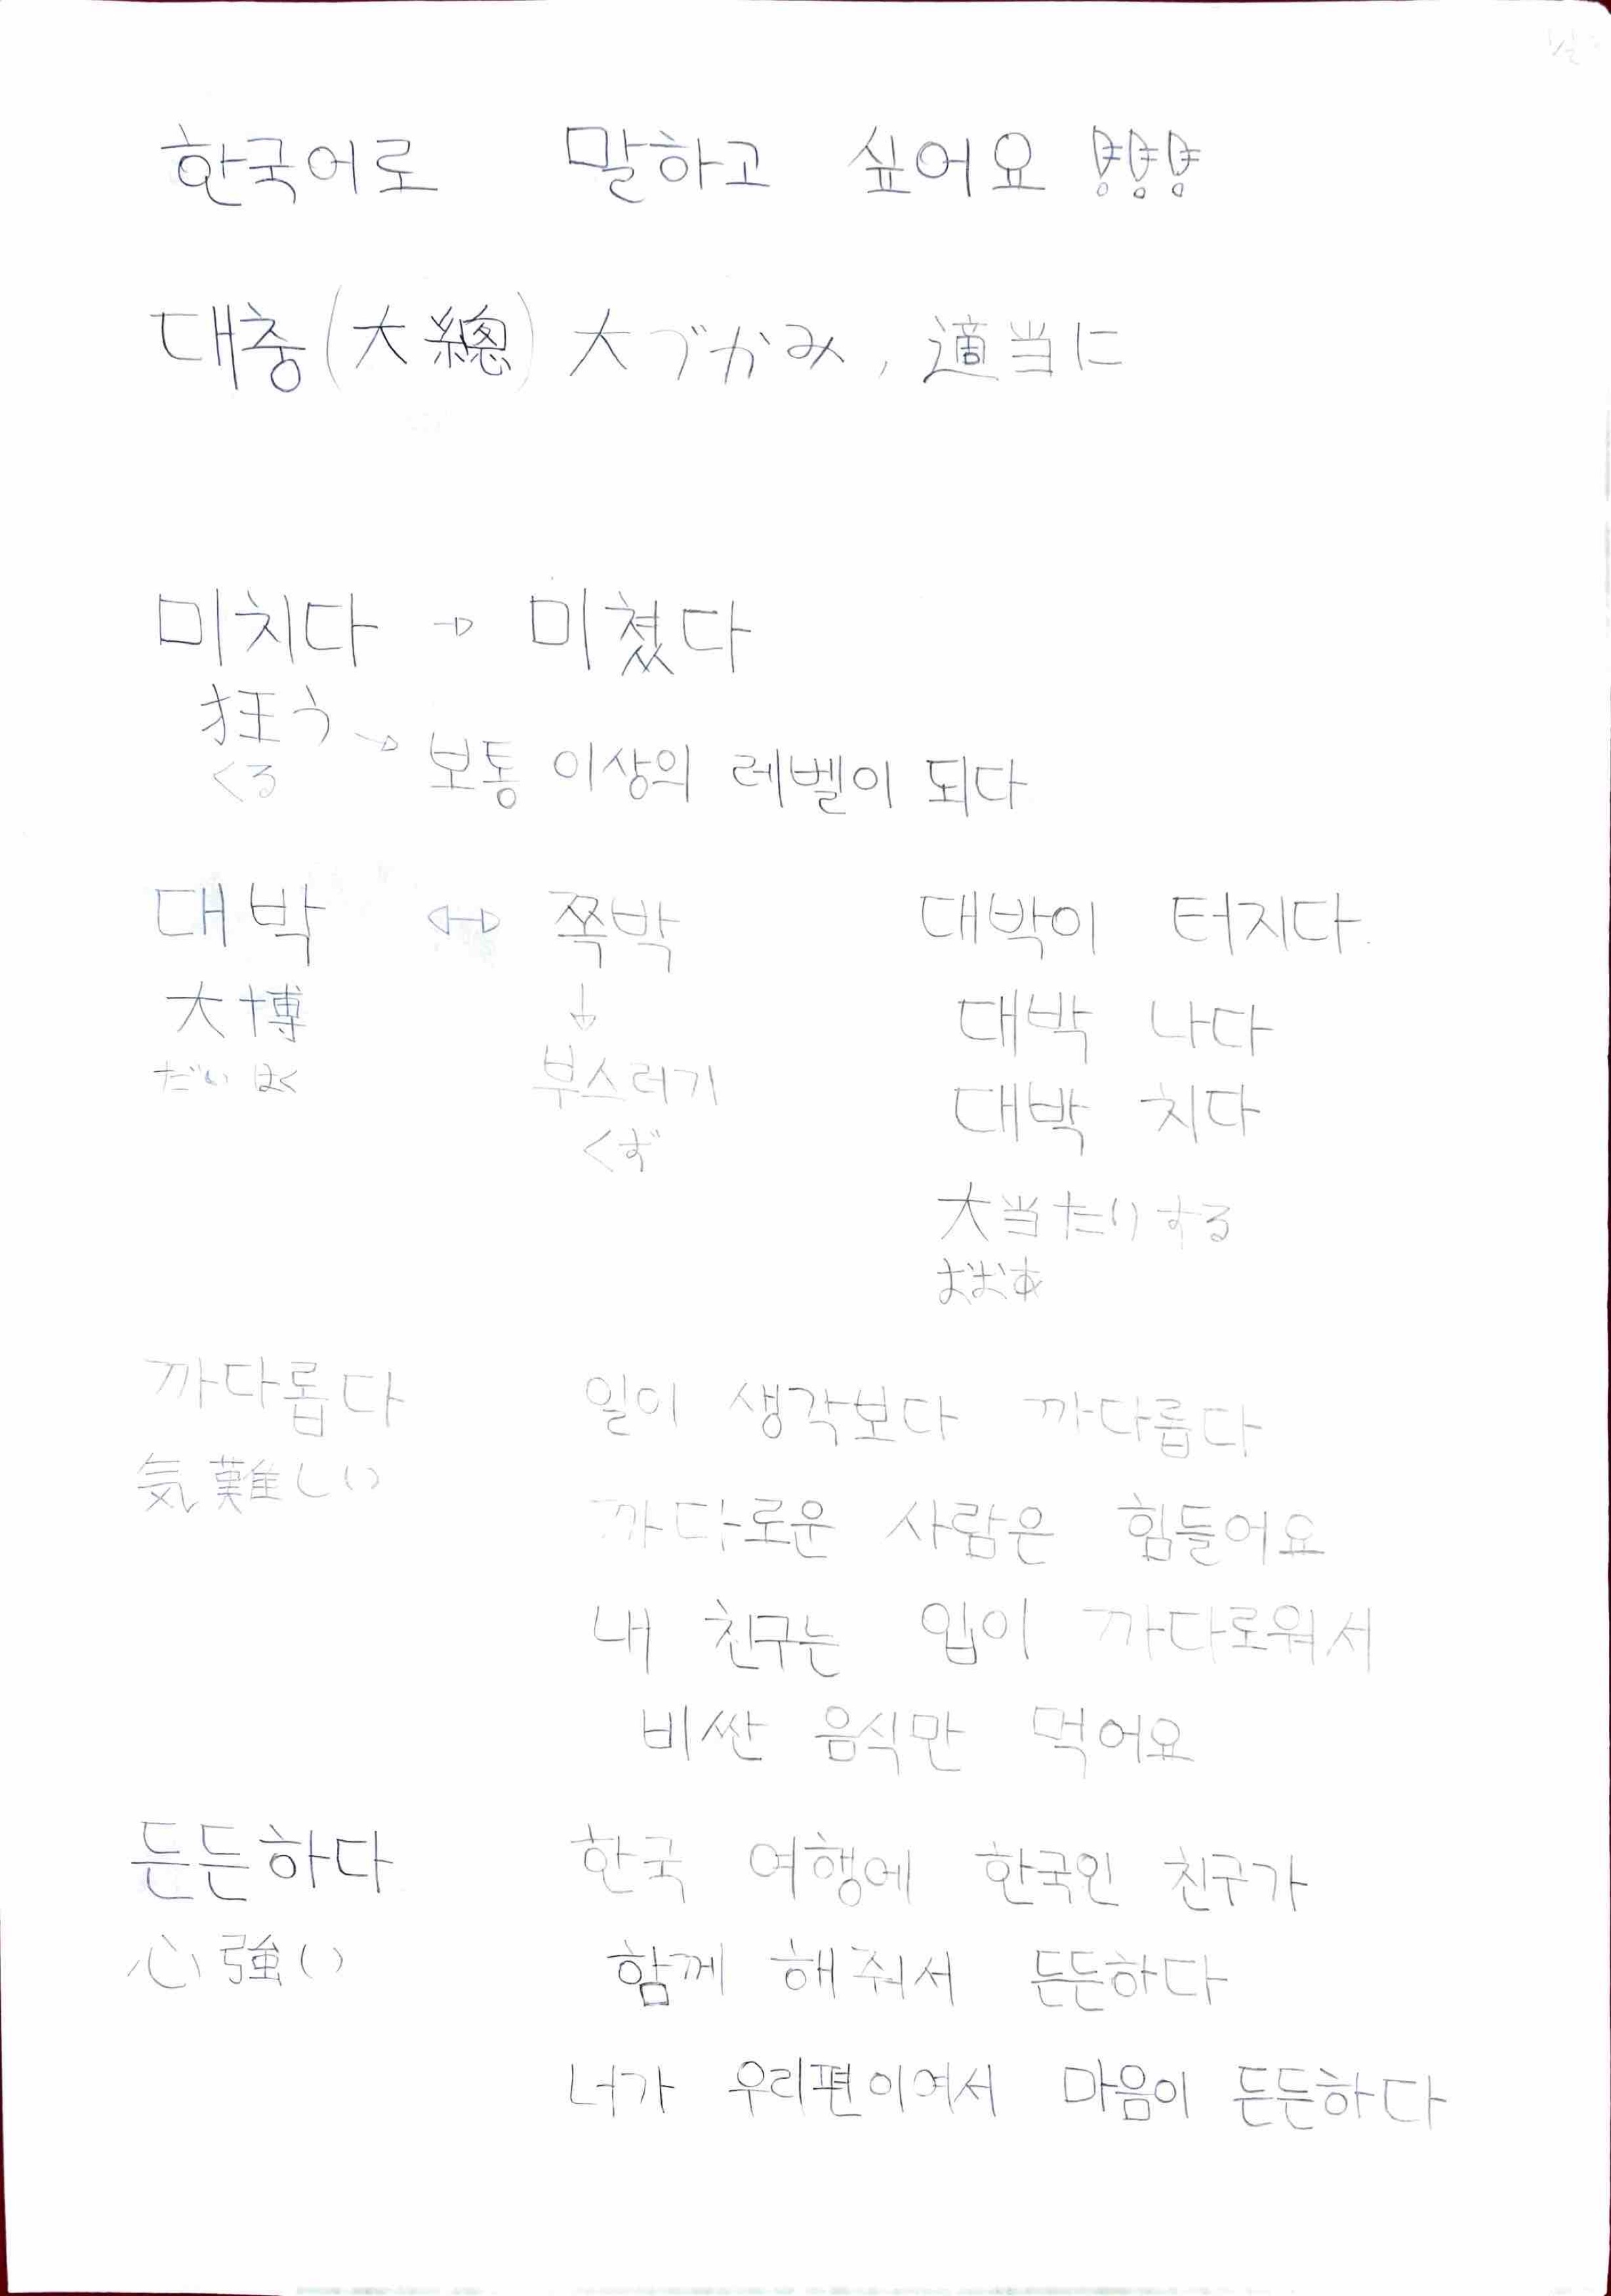 한국어로 말하고 싶어요
대충(大總) 大づかみ, 適当に
미치다 → 미쳤다
狂う → 보통 이상의 레벨이 되다
くる
대박 ↔ 쪽박
大博 ↓
だいはく 부스러기
くず
대박이 터지다.
대박 나다
대박 치다
大当たりする
おおあ
까다롭다 일이 생각보다 까다롭다
気難しい 까다로운 사람은 힘들어요
내 친구는 입이 까다로워서
비싼 음식만 먹어요
든든하다 한국 여행에 한국인 친구가
心強い 함께 해줘서 든든하다
너가 우리편이여서 마음이 든든하다